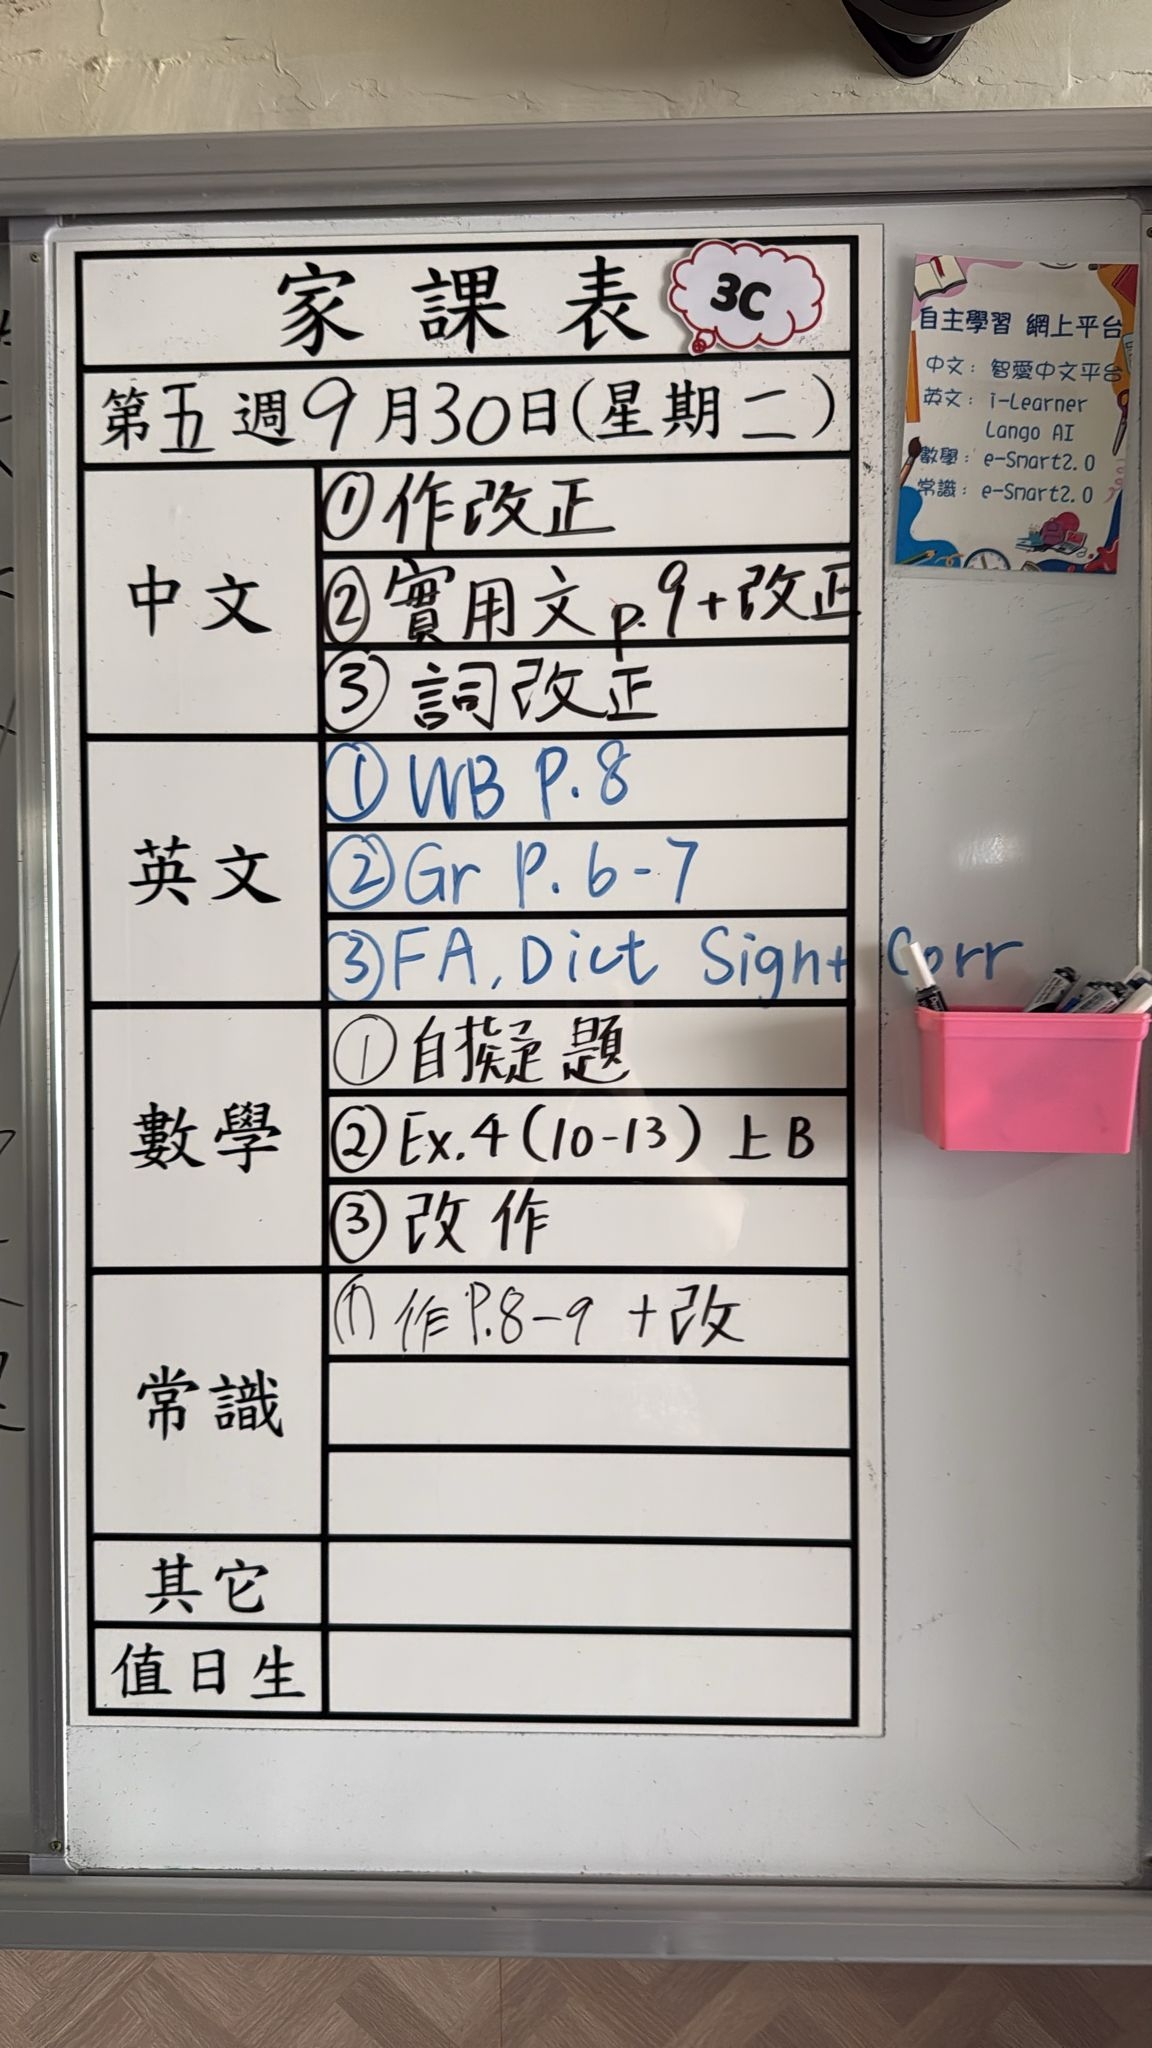 家課表 3C
第五週9月30日(星期二)
中文
①作改正
②實用文 p.9+改正
③詞改正
英文
①WB P.8
②Gr P.6-7
③FA, Dict Sign+ Corr
數學
①自擬題
②Ex.4(10-13)上B
③改作
常識
① 作P.8-9 +改
其它
值日生
自主學習 網上平台
中文: 智愛中文平台
英文: i-Learner
Lango AI
數學: e-Smart2.0
常識: e-Smart2.0